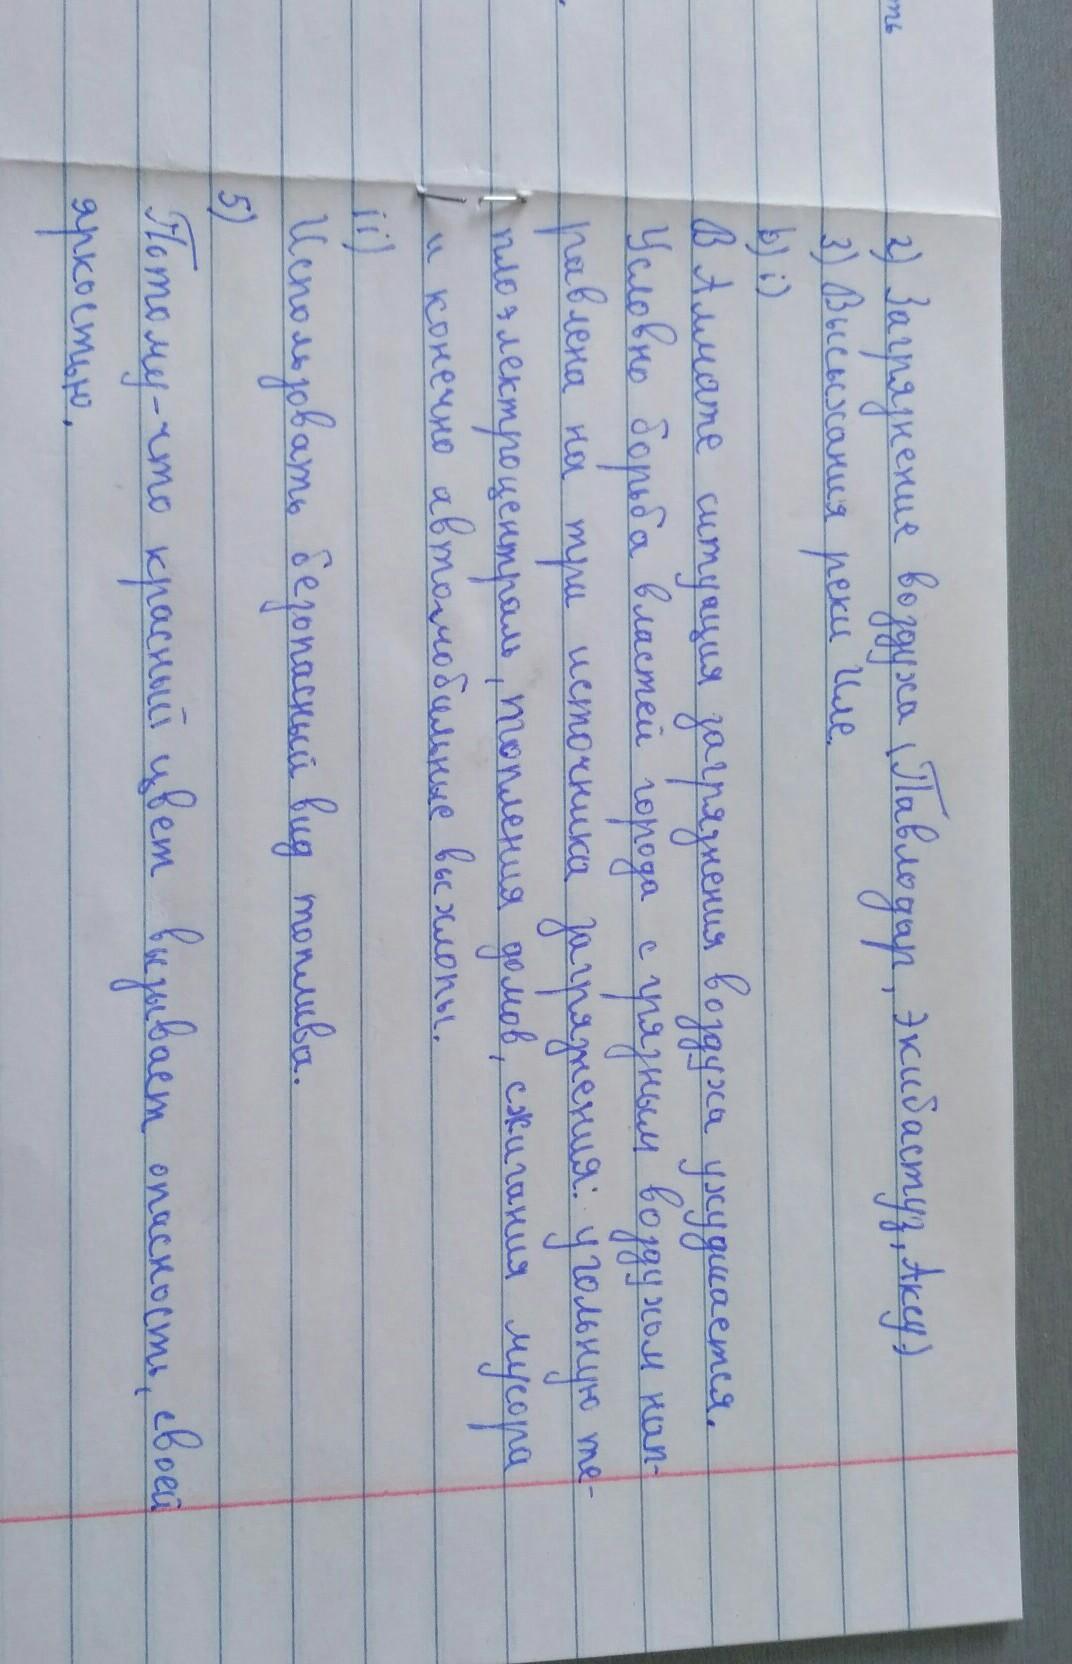 ть
2) Загрязнение воздуха (Павлодар, Экибастуз, Аксу)
3) Высыхания реки Иле.
b) i)
В Алмате ситуация загрязнения воздуха ухудшается.
Условно борьба властей города с грязным воздухом нап-
равлена на три источника загрязнения: угольную те-
плоэлектроцентраль, топления домов, сжигания мусора
и конечно автомобильные выхлопы.
ii)
Использовать безопасный вид топлива.
5)
Потому-что красный цвет вызывает опасность, своей
яркостью.